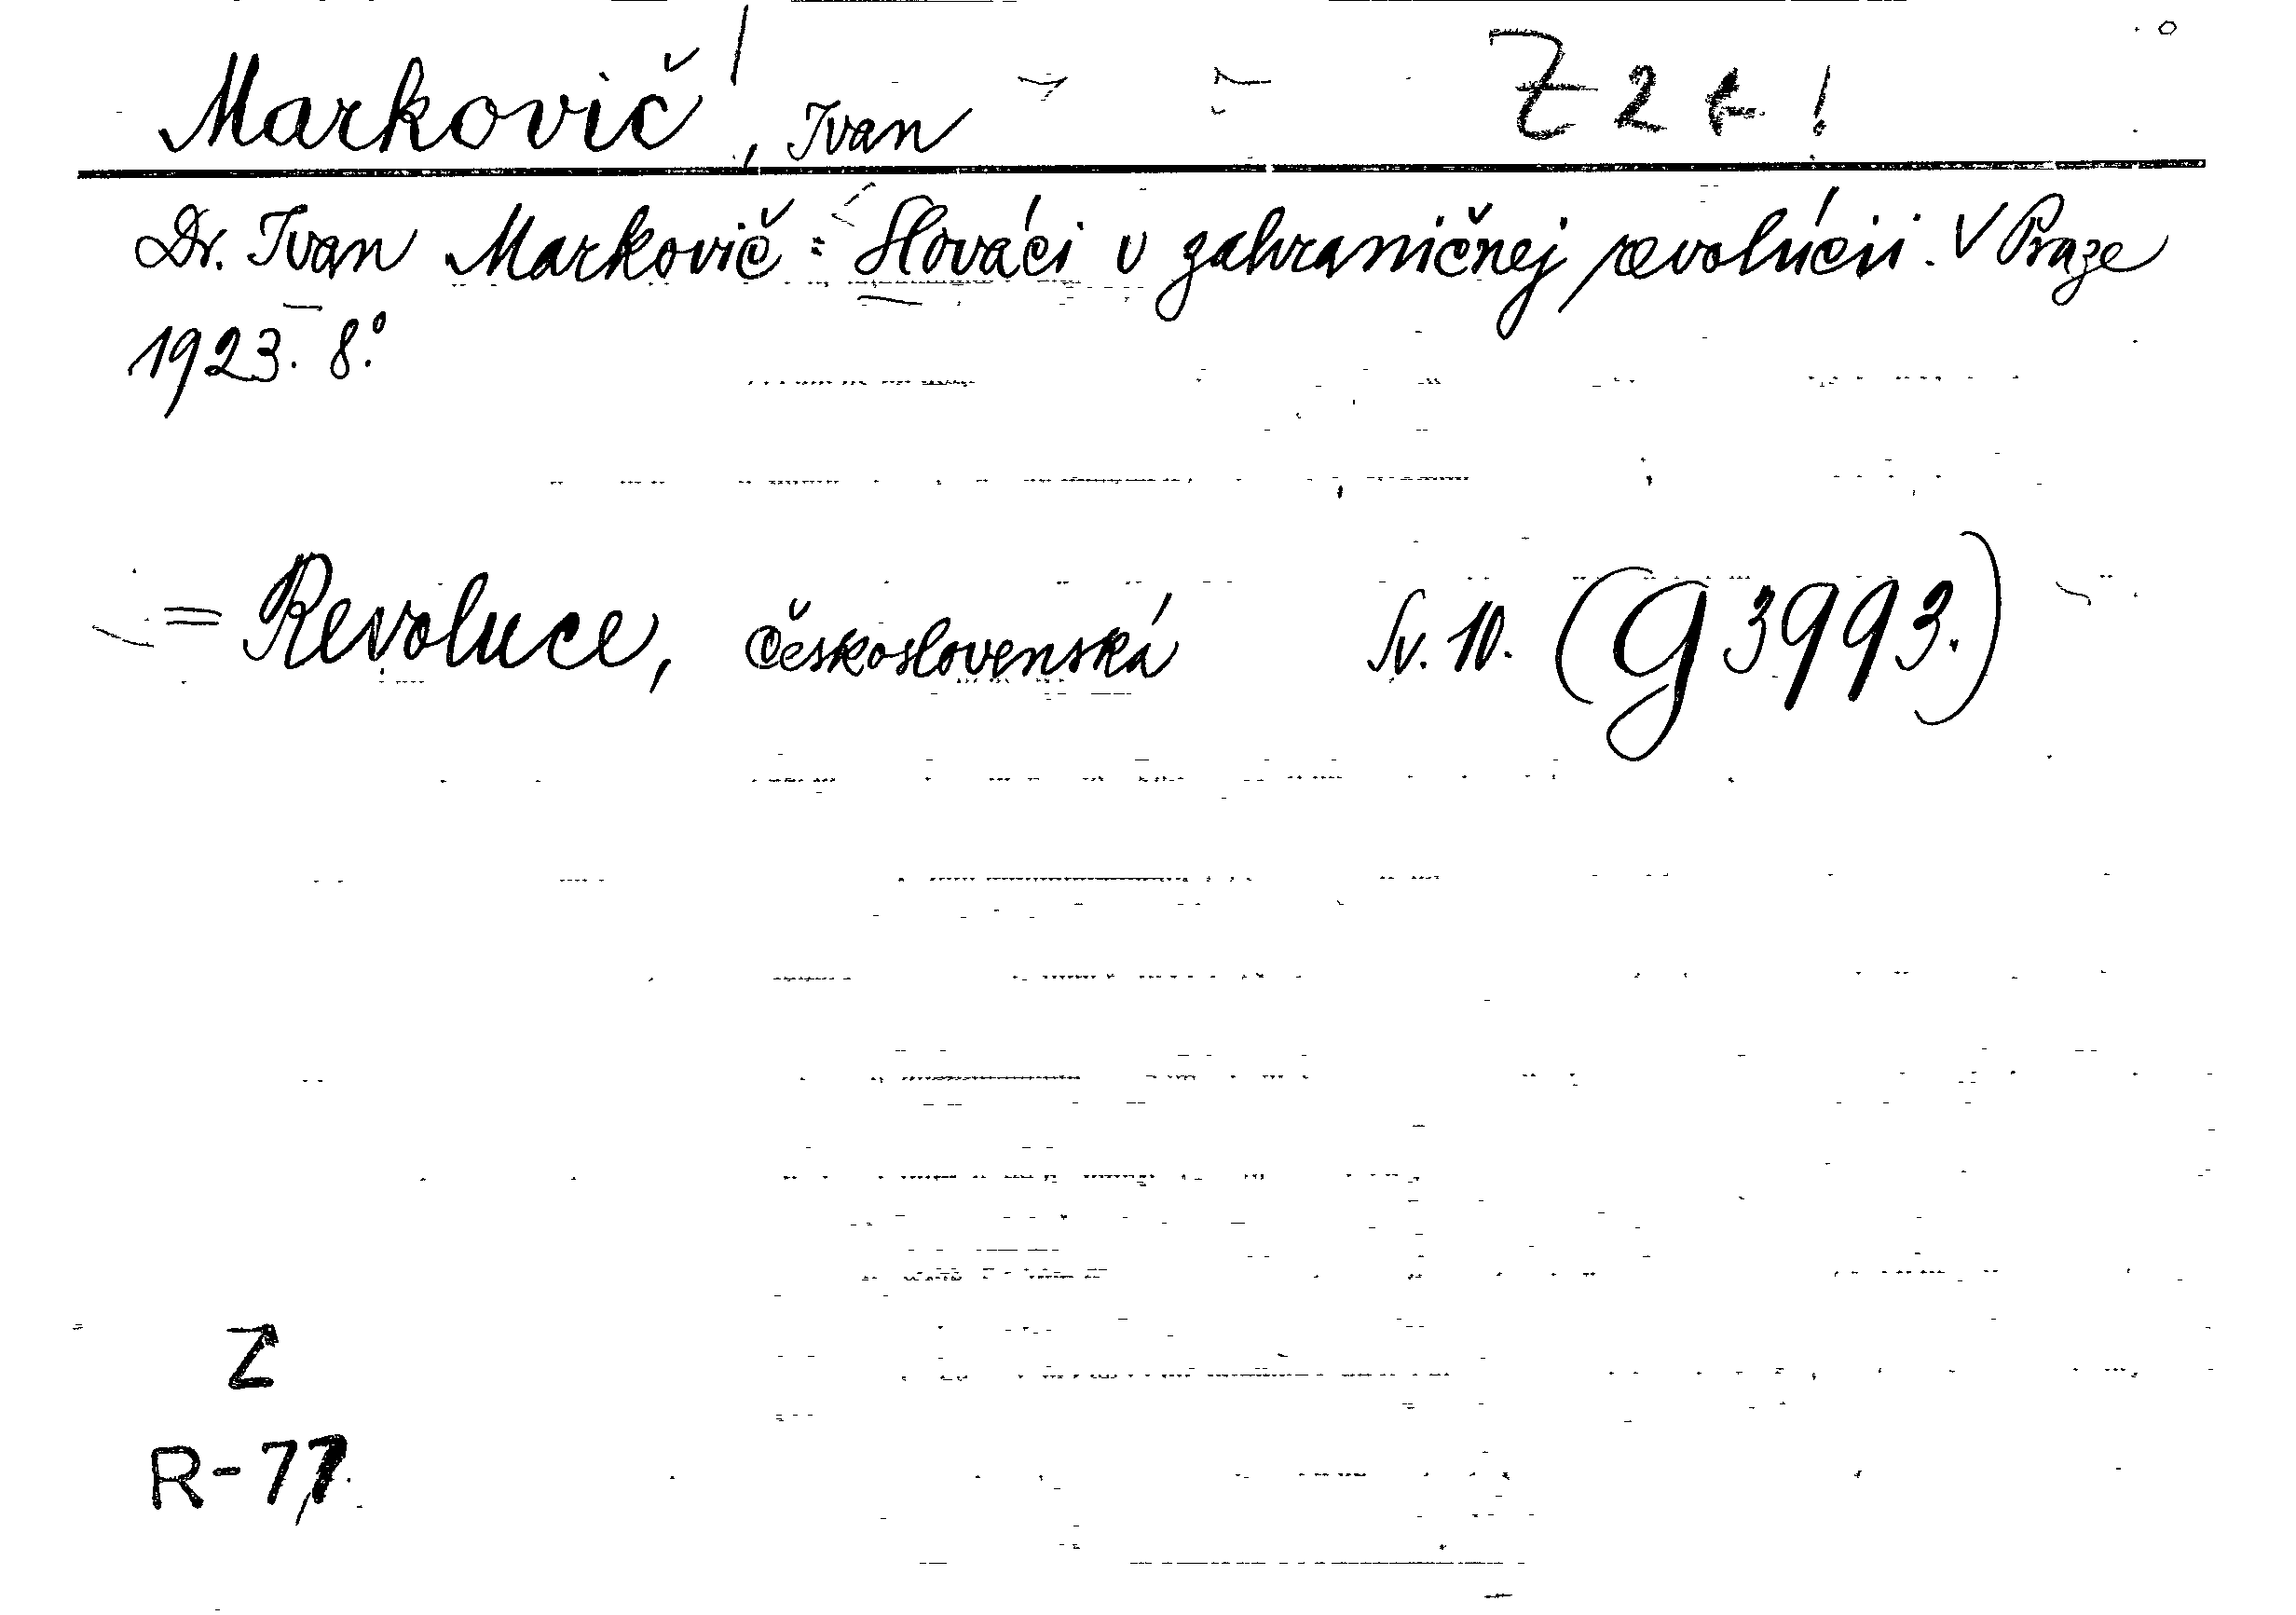 Markovič!, Ivan Z 2 t. !
Dr. Ivan Markovič: Slováci v zahraničnej revolúcii. V Praze
1923. 8.°
= Revoluce, Československá Sv. 10. (G 3993.)
Z
R-77